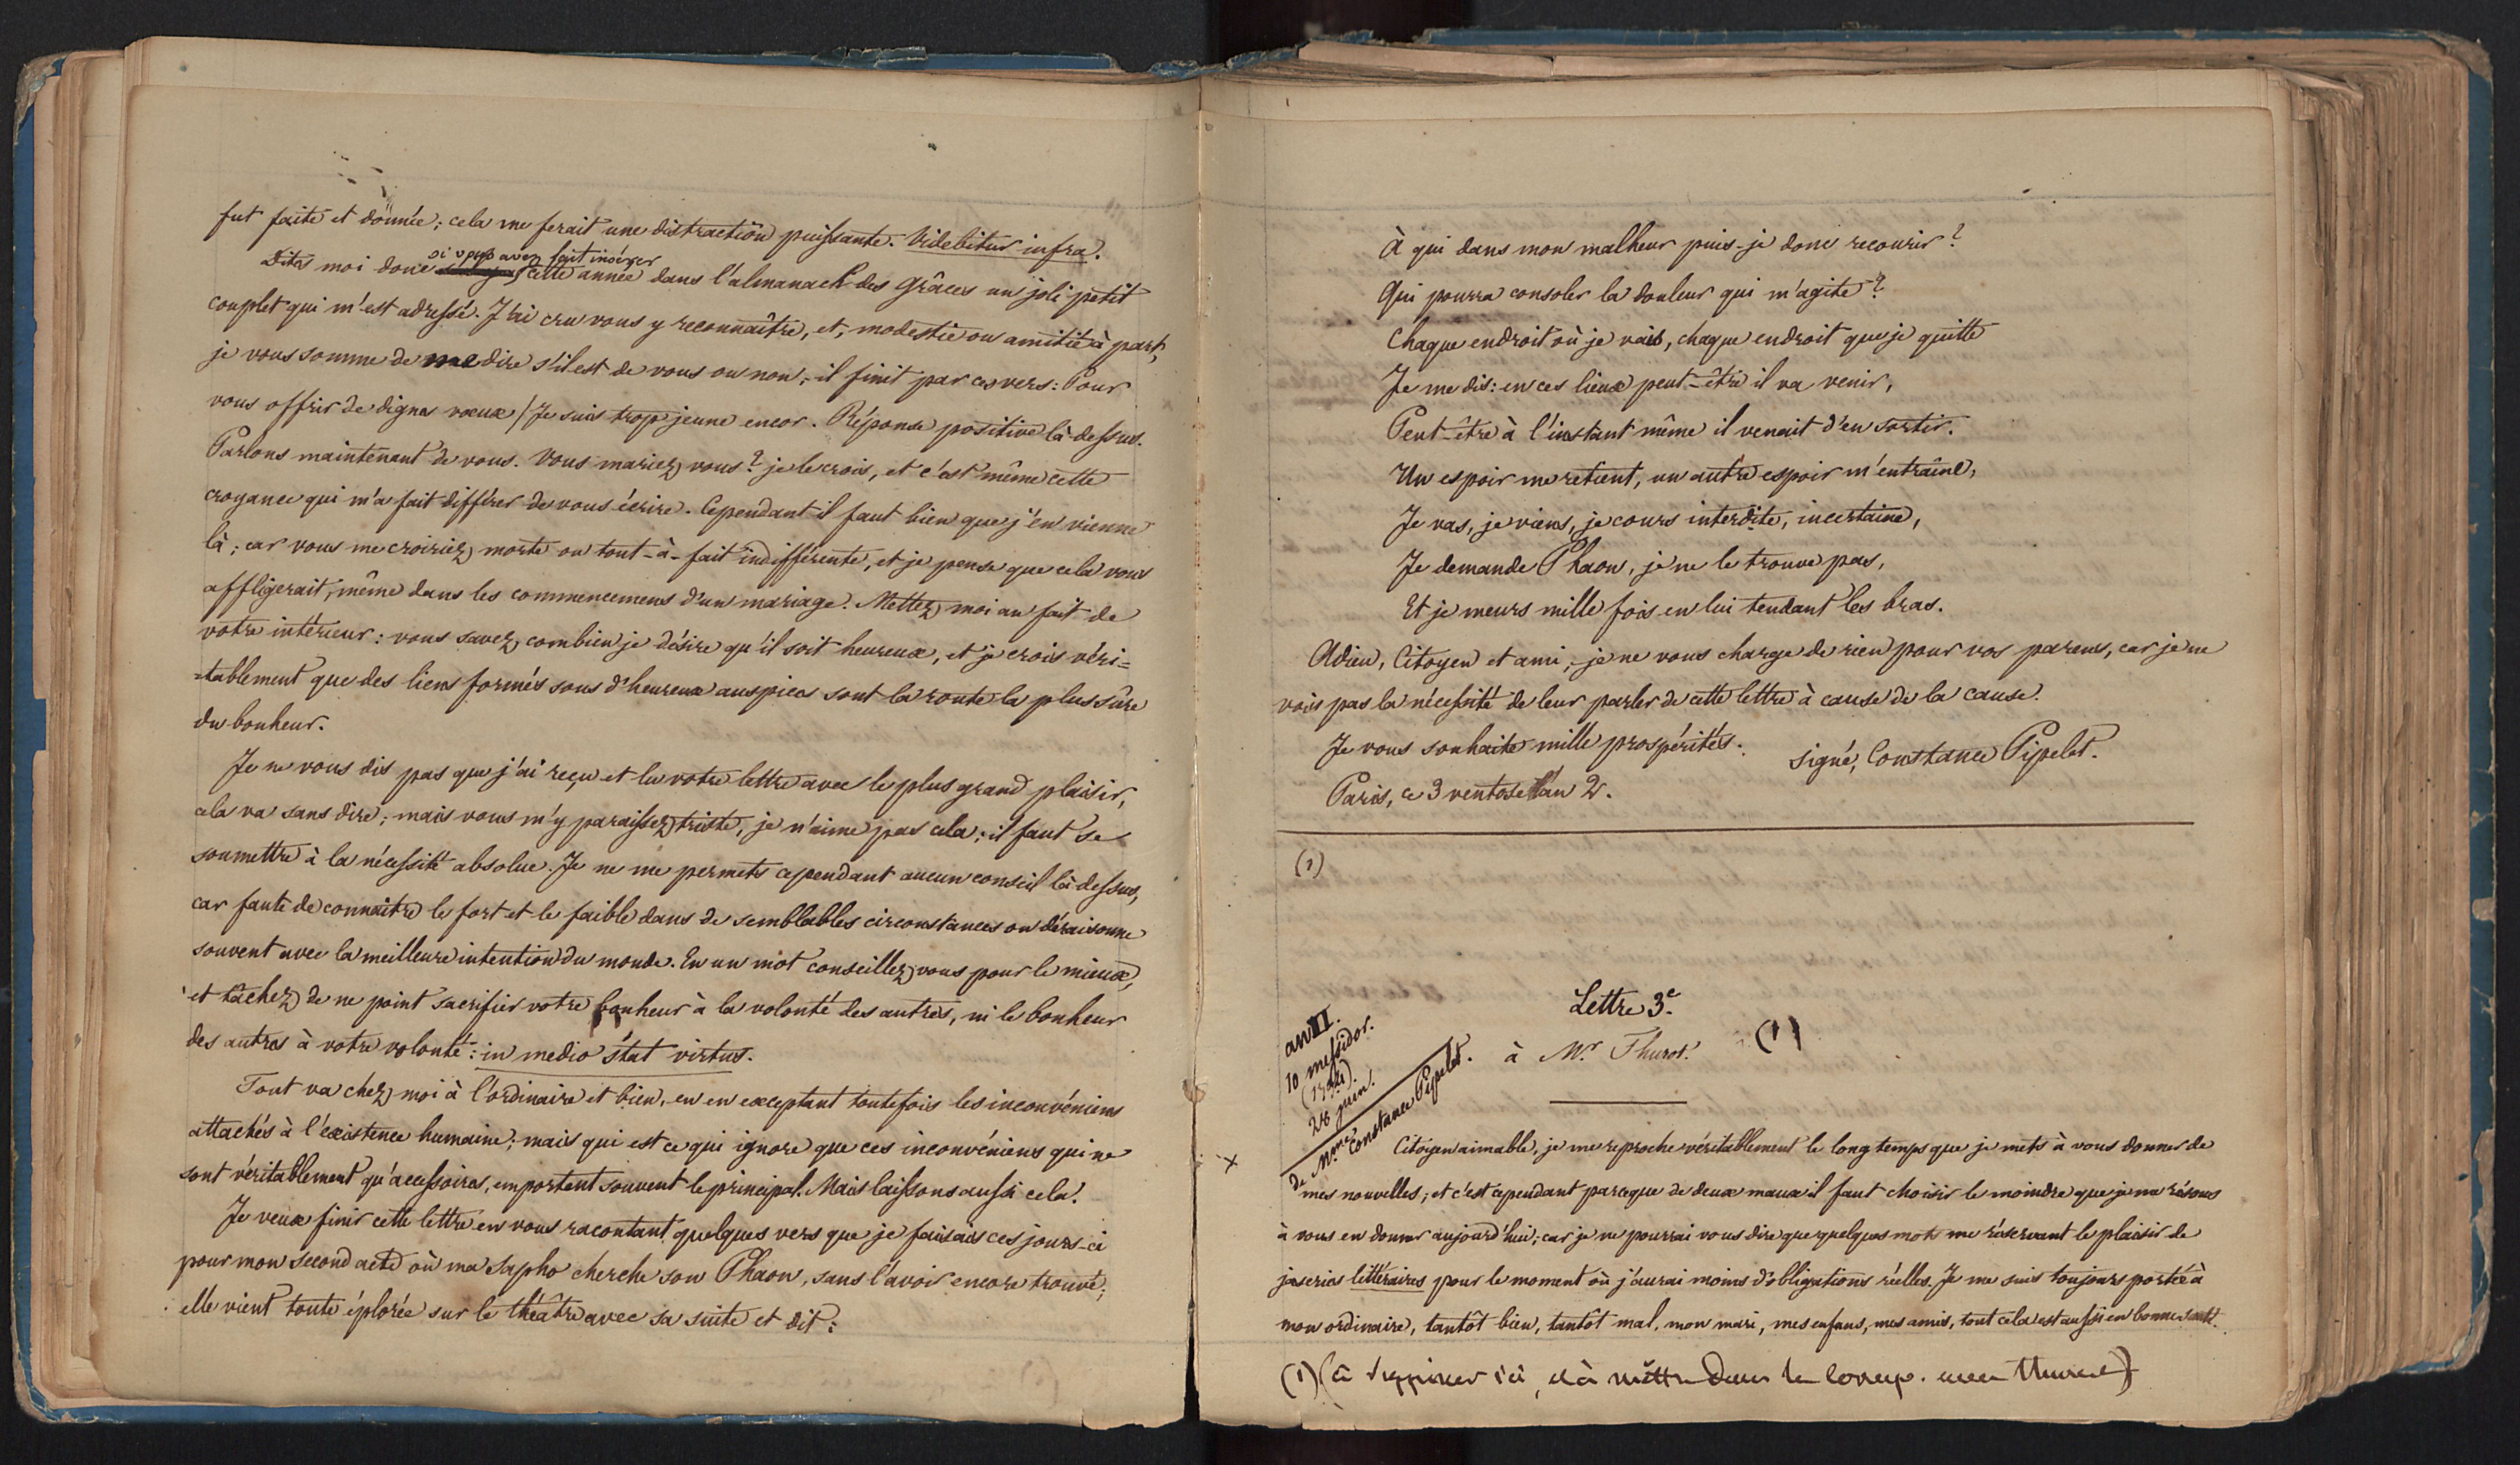 fut faite et donnée; cela me ferait une distraction puissante. Videbitur infra.
si vous avez fait insérer
Dites moi donc cette année dans l'almanach des Grâces un joli petit
couplet qui m'est adressé. J'ai cru vous y reconnaître, et, modestie ou amitié à part,
je vous somme de me dire s'il est de vous ou non; il finit par ces vers: Pour
vous offrir de dignes vœux / Je suis trop jeune encor. Réponse positive là-dessus.
Parlons maintenant de vous. Vous mariez vous? je le crois, et c'est même cette
croyance qui m'a fait différer de vous écrire. Cependant il faut bien que j'en vienne
là; car vous me croiriez morte ou tout-à-fait indifférente, et je pense que cela vous
affligerait, même dans les commencemens d'un mariage. Mettez moi au fait de
votre intérieur: vous savez combien je désire qu'il soit heureux, et je crois véri=
=tablement que des liens formés sous d'heureux auspices sont la route la plus sûre
du bonheur.
Je ne vous dis pas que j'ai reçu et lu votre lettre avec le plus grand plaisir,
cela va sans dire; mais vous m'y paraissez triste, je n'aime pas cela; il faut se
soumettre à la nécessité absolue. Je ne me permets cependant aucun conseil là dessus,
car faute de connaître le fort et le faible dans de semblables circonstances on déraisonne
souvent avec la meilleure intention du monde. En un mot conseillez vous pour le mieux,
et tâchez de ne point sacrifier votre bonheur à la volonté des autres, ni le bonheur
des autres à votre volonté: in medio stat virtus.
Tout va chez moi à l'ordinaire et bien, en en exceptant toutefois les inconvéniens
attachés à l'existence humaine; mais qui est ce qui ignore que ces inconvéniens qui ne
sont véritablement qu'accessoires, emportent souvent le principal. Mais laissons aussi cela.
Je veux finir cette lettre en vous racontant quelques vers que je faisais ces jours-ci
pour mon second acte où ma Sapho cherche son Phaon, sans l'avoir encore trouvé;
elle vient toute éplorée sur le théâtre avec sa suite et dit:
À qui dans mon malheur puis-je donc recourir?
Qui pourra consoler la douleur qui m'agite?
Chaque endroit où je vais, chaque endroit que je quitte
Je me dis: en ces lieux peut-être il va venir,
Peut-être à l'instant même il venait d'en sortir.
Un espoir me retient, un autre espoir m'entraîne,
Je vas, je viens, je cours interdite, incertaine,
Je demande Phaon, je ne le trouve pas,
Et je meurs mille fois en lui tendant les bras.
Adieu, Citoyen et ami, je ne vous charge de rien pour vos parens, car je ne
vois pas la nécessité de leur parler de cette lettre à cause de la cause.
Je vous souhaite mille prospérités.
signé, Constance Pipelet.
Paris, ce 3 ventose l'an 2.
(1)
Lettre 3e.
à Mr. Thurot. (1)
an II.
10 messidor.
(1794).
28 juin.
de Mme. Constance Pipelet.
Citoyen aimable, je me reproche véritablement le long temps que je mets à vous donner de
mes nouvelles; et c'est cependant parceque de deux maux il faut choisir le moindre que je me résous
à vous en donner aujourd'hui; car je ne pourrai vous dire que quelques mots me réservant le plaisir de
jaseries littéraires pour le moment où j'aurai moins d'obligations réelles. Je me suis toujours portée à
mon ordinaire, tantôt bien, tantôt mal, mon mari, mes enfans, mes amis, tout cela est aussi en bonne santé.
(1) (à supprimer ici, et à mettre dans la corresp. avec Thurot)